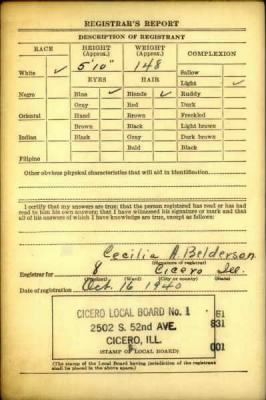 REGISTRAR'S REPORT
DESCRIPTION OF REGISTRANT
RACE HEIGHT (Approx.) WEIGHT (Approx.) COMPLEXION
White ✓ 5'10" 148 Sallow
EYES HAIR Light ✓
Negro Blue ✓ Blonde ✓ Ruddy
Gray Red Dark
Oriental Hazel Brown Freckled
Brown Black Light brown
Indian Black Gray Dark brown
Bald Black
Filipino
Other obvious physical characteristics that will aid in identification
I certify that my answers are true; that the person registered has read or has had
read to him his own answers; that I have witnessed his signature or mark and that
all of his answers of which I have knowledge are true, except as follows:
Cecilia A. Belderson
(Signature of registrar)
Registrar for 8 Cicero Ill.
(Precinct) (Ward) (City or county) (State)
Date of registration Oct. 16 1940
CICERO LOCAL BOARD No. 1 51
2502 S. 52nd AVE. 831
CICERO, ILL. 001
(STAMP OF LOCAL BOARD)
(The stamp of the Local Board having jurisdiction of the registrant
shall be placed in the above space.)